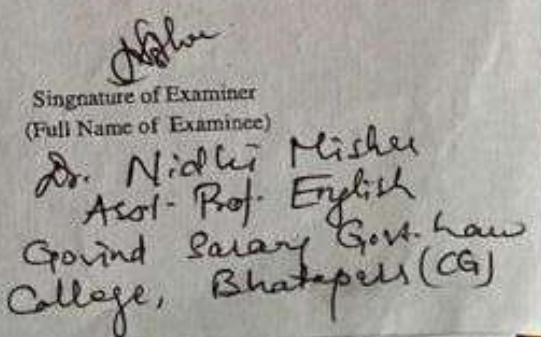 Singnature of Examiner
(Full Name of Examinee)
Dr. Nidhi Mishra
Asst. Prof. English
Govind Sarang Govt. Law
College, Bhatapara (CG)